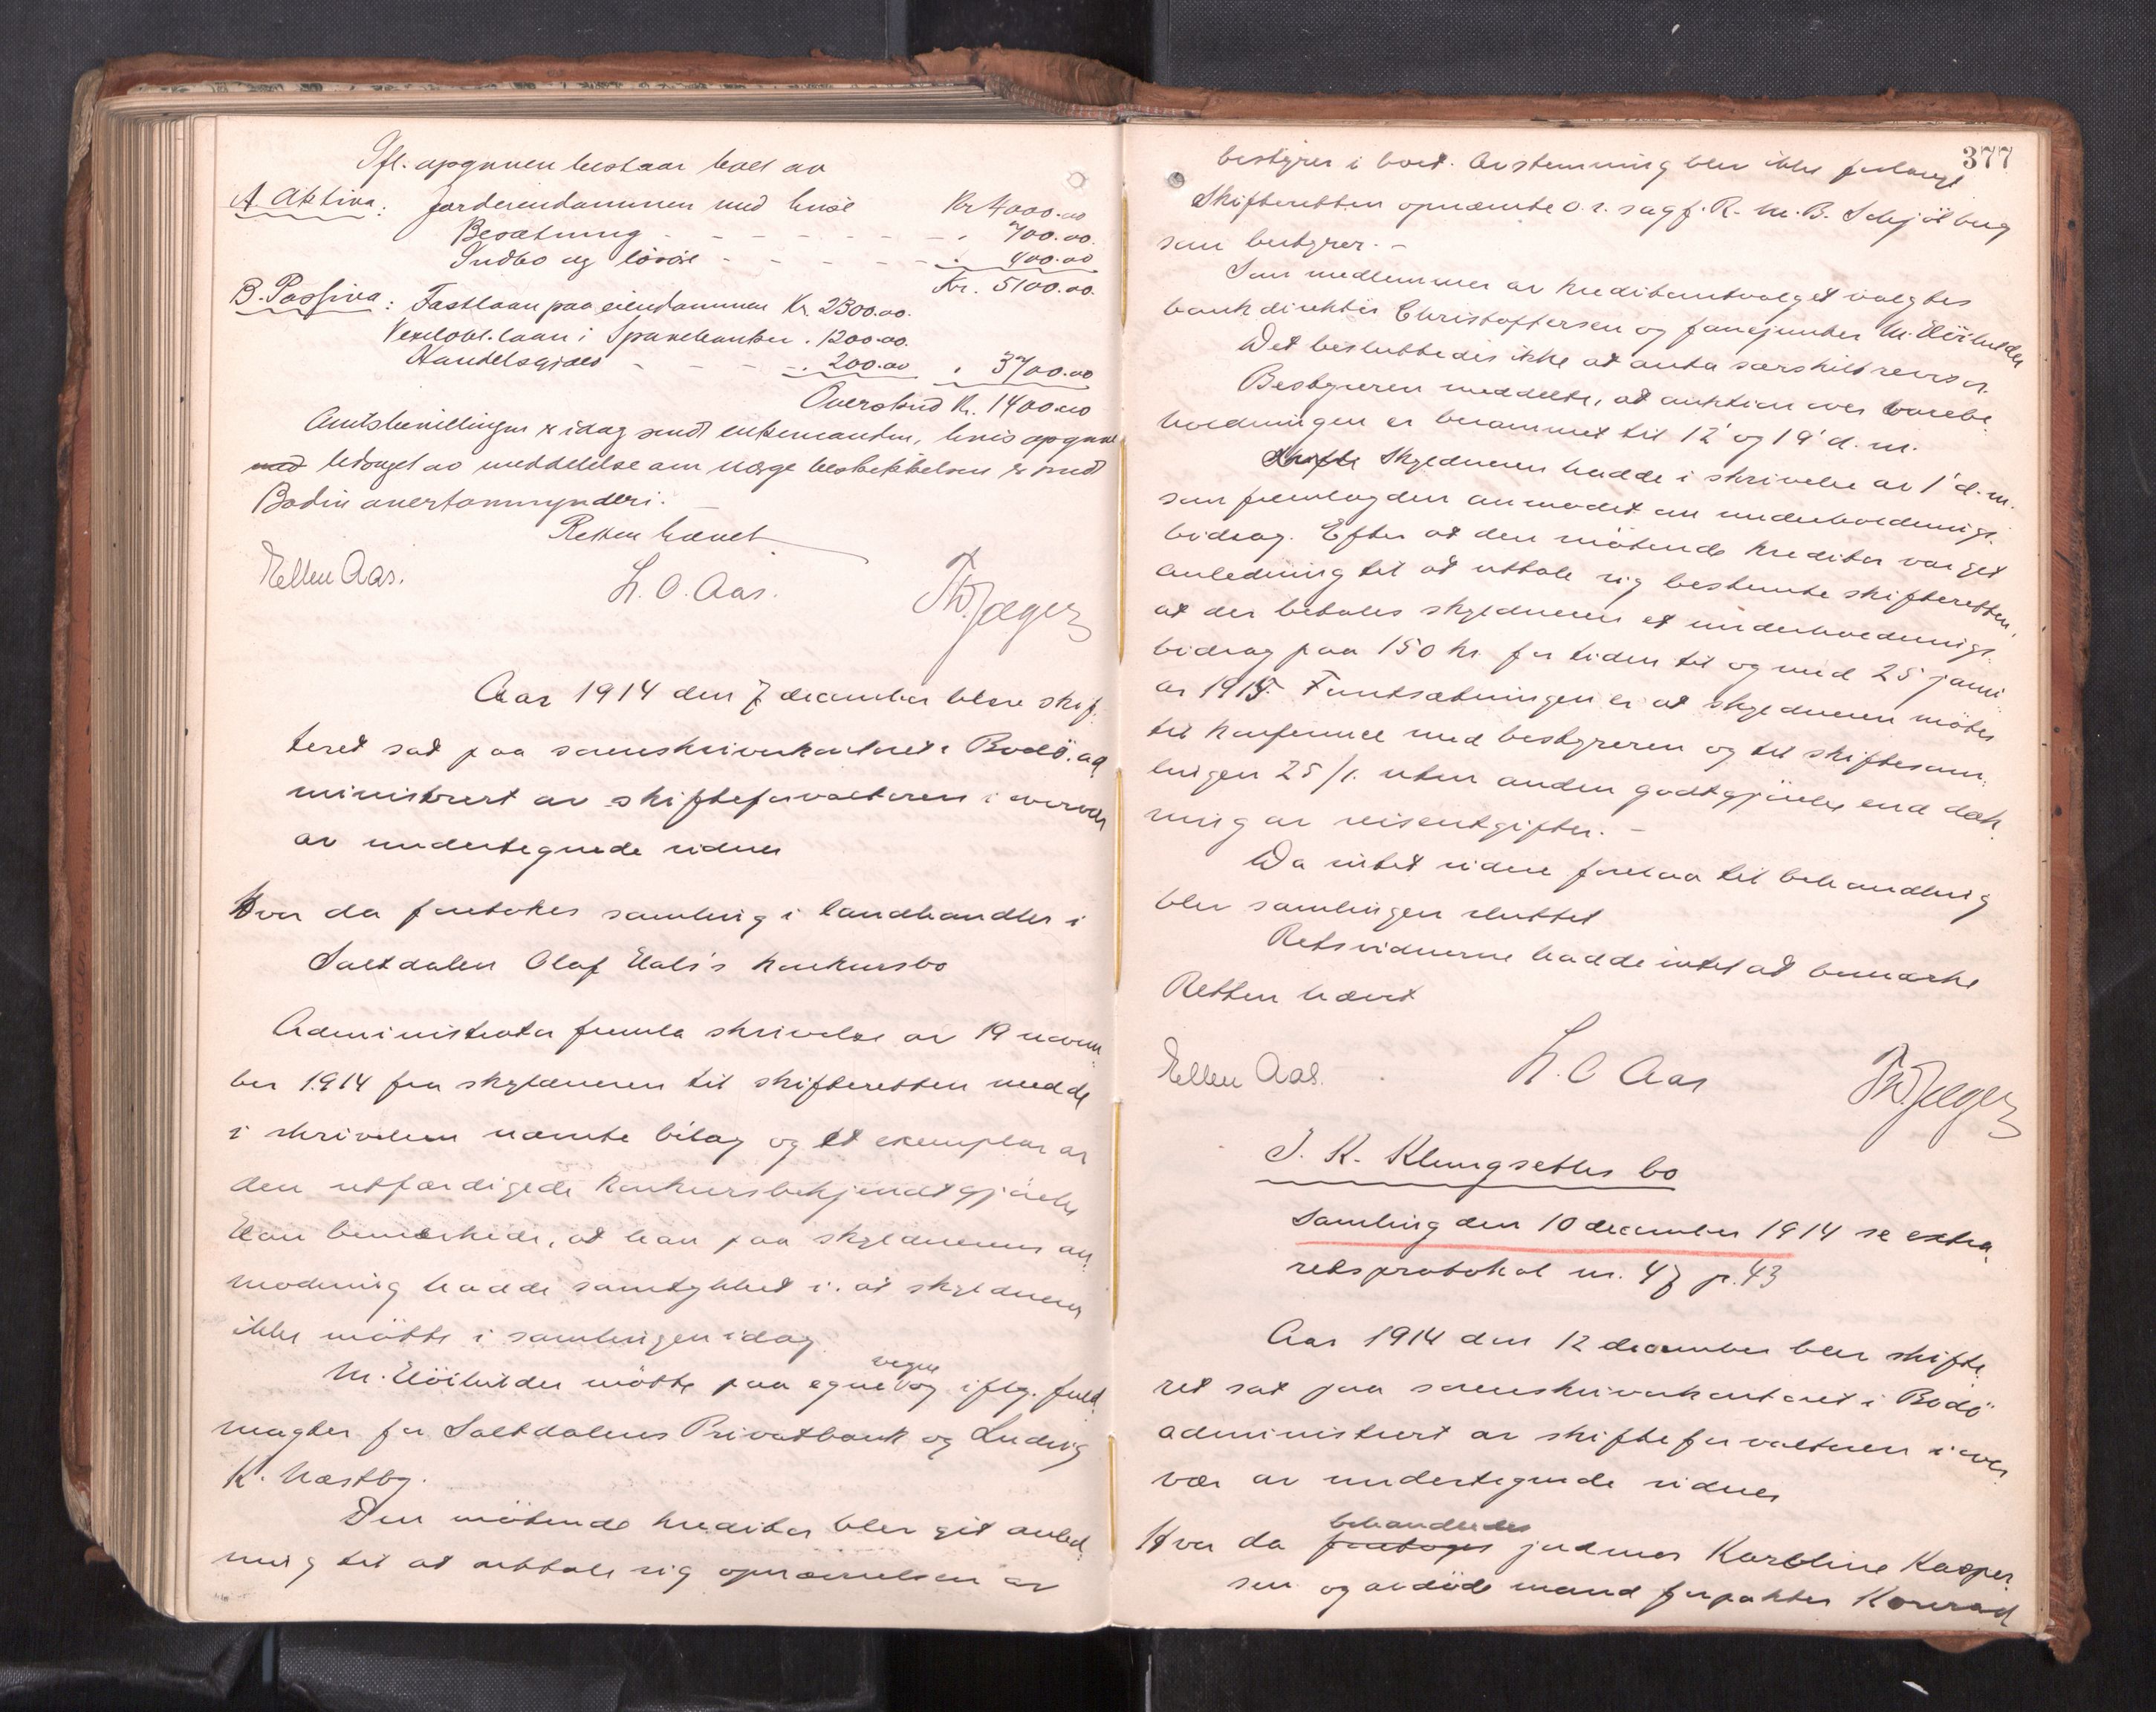 Ifl. opgaven bestaar boet av
A. Aktiva: Jordeiendommen med huse Kr 4000.00
Besætning - - - - - - - . 700.00.
Indbo og løsøre - - - - - . 400.00
Kr. 5100.00.
B. Passiva: Fastlaan paa eiendommen Kr. 2300.00.
Vexelobl.laan i Sparebanken . 1200.00.
Handelsgjæld - - - . 200.00 . 3700.00
Overskud Kr. 1400.00
Amtsbevillingen er idag sendt enkemanden, hvis opgave
med ledsaget av meddelelse om værge beskikkelsen er sendt
Bodin overformynderi.
Retten hævet
Ellen Aas. L. O. Aas. Th. Jæger
Aar 1914 den 7 december blev skif-
teret sat paa sorenskriverkontoret i Bodö, ad
ministrert av skifteforvalteren i overvær
av undertegnede vidner
Hvor da foretokes samling i landhandler i
Saltdalen Olaf Hals's konkursbo
Administrator fremla skrivelse av 19 novem-
ber 1914 fra skyldneren til skifteretten med de
i skrivelsen nævnte bilag og et exemplar av
den utfærdigede konkursbekjendtgjörelse
Han bemerkede, at han paa skyldnerens an-
modning hadde samtykket i at skyldneren
ikke møtte i samlingen idag
M. Höibilder møtte paa egne vegne og iflg. fuld-
magter for Saltdalens Privatbank og Ludvig
K. Næstby.
Den møtende kreditor blev git anled-
ning til at uttale sig opnævnelsen av
377
bestyrer i boet. Avstemning blev ikke forlangt
Skifteretten opnævnte o.r. sagf. R. M. B. Schjölberg
som bestyrer. -
Som medlemmer av kreditorutvalget valgtes
bankdirektör Christoffersen og fanejunker M. Höibilder
Det besluttedes ikke at anta særskilt revisor.
Bestyreren meddelte, at auktion over varebe-
holdningen er berammet til 12' og 19' d. m.
Skyldneren hadde i skrivelse av 1' d. m.
som fremlagdes anmodet om underholdnings-
bidrag. Efter at den møtende kreditor var git
anledning til at uttale sig bestemte skifteretten,
at der betales skyldneren et underholdnings-
bidrag paa 150 kr. for tiden til og med 25 janu-
ar 1915. Forutsætningen er at skyldneren möter
til konferance med bestyreren og til skiftesam-
lingen 25/1. uten anden godtgjörelse end dæk-
ning av reiseutgifter. -
Da intet videre forelaa til behandling
blev samlingen sluttet
Retsvidnerne hadde intet at bemærke
Retten hævet
Ellen Aas. L. O Aas Th. Jæger
J. K. Klungsetles bo
Samling den 10 december 1914 se extra-
retsprotokol nr. 47 p. 43
Aar 1914 den 12 december blev skifte-
ret sat paa sorenskriverkontoret i Bodö
administrert av skifteforvalteren i over-
vær av undertegnede vidner
Hvor da foretoges behandledes jordmor Karoline Kasper-
sen og avdöde mand forpakter Konrad